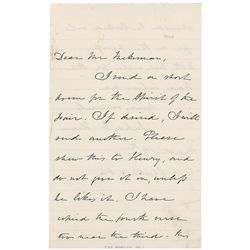 Dear Mr
I send a short
poem for the Spirit of the
Fair. If desired, I will
send another. Please
show this to Henry, and
do not give it in, unless
he likes it. I have
copied the fourth verse
too near the third - this